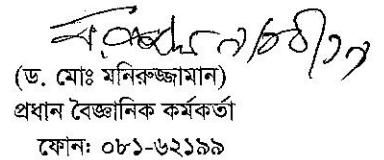 (ড. মোঃ মনিরুজ্জামান)
প্রধান বৈজ্ঞানিক কর্মকর্তা
ফোনঃ ০৮১-৬২১৯৯